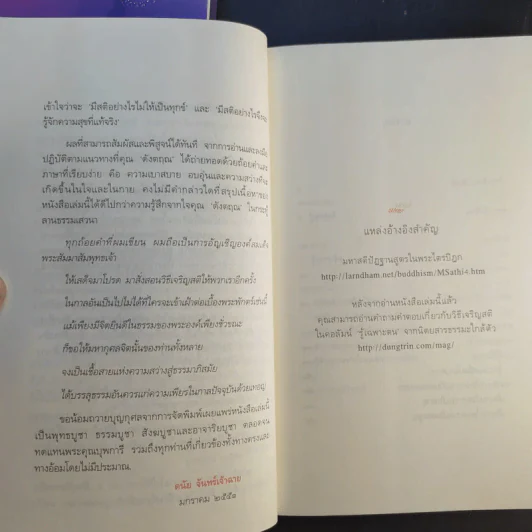 เข้าใจว่าจะ 'มีสติอย่างไรไม่ให้เป็นทุกข์' และ 'มีสติอย่างไรจึงจะ
รู้จักความสุขที่แท้จริง'
ผลที่สามารถสัมผัสและพิสูจน์ได้ทันที จากการอ่านและลงมือ
ปฏิบัติตามแนวทางที่คุณ 'ดังตฤณ' ได้ถ่ายทอดด้วยถ้อยคำและ
ภาษาที่เรียบง่าย คือ ความเบาสบาย อบอุ่นและความสว่างที่จะ
เกิดขึ้นในใจและในกาย คงไม่มีคำกล่าวใดที่สรุปเนื้อหาของ
หนังสือเล่มนี้ได้ดีไปกว่าความรู้สึกจากใจคุณ 'ดังตฤณ' ในกระทู้
ลานธรรมเสวนา
ทุกถ้อยคำที่ผมเขียน ผมถือเป็นการอัญเชิญองค์สมเด็จ
พระสัมมาสัมพุทธเจ้า
ให้เสด็จมาโปรด มาสั่งสอนวิธีเจริญสติให้พวกเราอีกครั้ง
ในกาลอันเป็นไปไม่ได้ที่ใครจะเข้าเฝ้าต่อเบื้องพระพักตร์เช่นนี้
แม้เพียงมีจิตยินดีในธรรมของพระองค์เพียงชั่วขณะ
ก็ขอให้มหากุศลจิตนั้นของท่านทั้งหลาย
จงเป็นเชื้อสายแห่งความสว่างสู่ธรรมาภิสมัย
ได้บรรลุธรรมอันควรแก่ความเพียรในกาลปัจจุบันด้วยเทอญ
ขอน้อมถวายบุญกุศลจากการจัดพิมพ์เผยแพร่หนังสือเล่มนี้
เป็นพุทธบูชา ธรรมบูชา สังฆบูชาและอาจาริยบูชา ตลอดจน
ทดแทนพระคุณบุพการี รวมถึงทุกท่านที่เกี่ยวข้องทั้งทางตรงและ
ทางอ้อมโดยไม่มีประมาณ
ดนัย จันทร์เจ้าฉาย
มกราคม ๒๕๕๑
แหล่งอ้างอิงสำคัญ
มหาสติปัฏฐานสูตรในพระไตรปิฎก
http://larndham.net/buddhism/MSathi4.htm
หลังจากอ่านหนังสือเล่มนี้แล้ว
คุณสามารถอ่านคำถามคำตอบเกี่ยวกับวิธีเจริญสติ
ในคอลัมน์ 'รู้เฉพาะตน' จากนิตยสารธรรมะใกล้ตัว
http://dungtrin.com/mag/